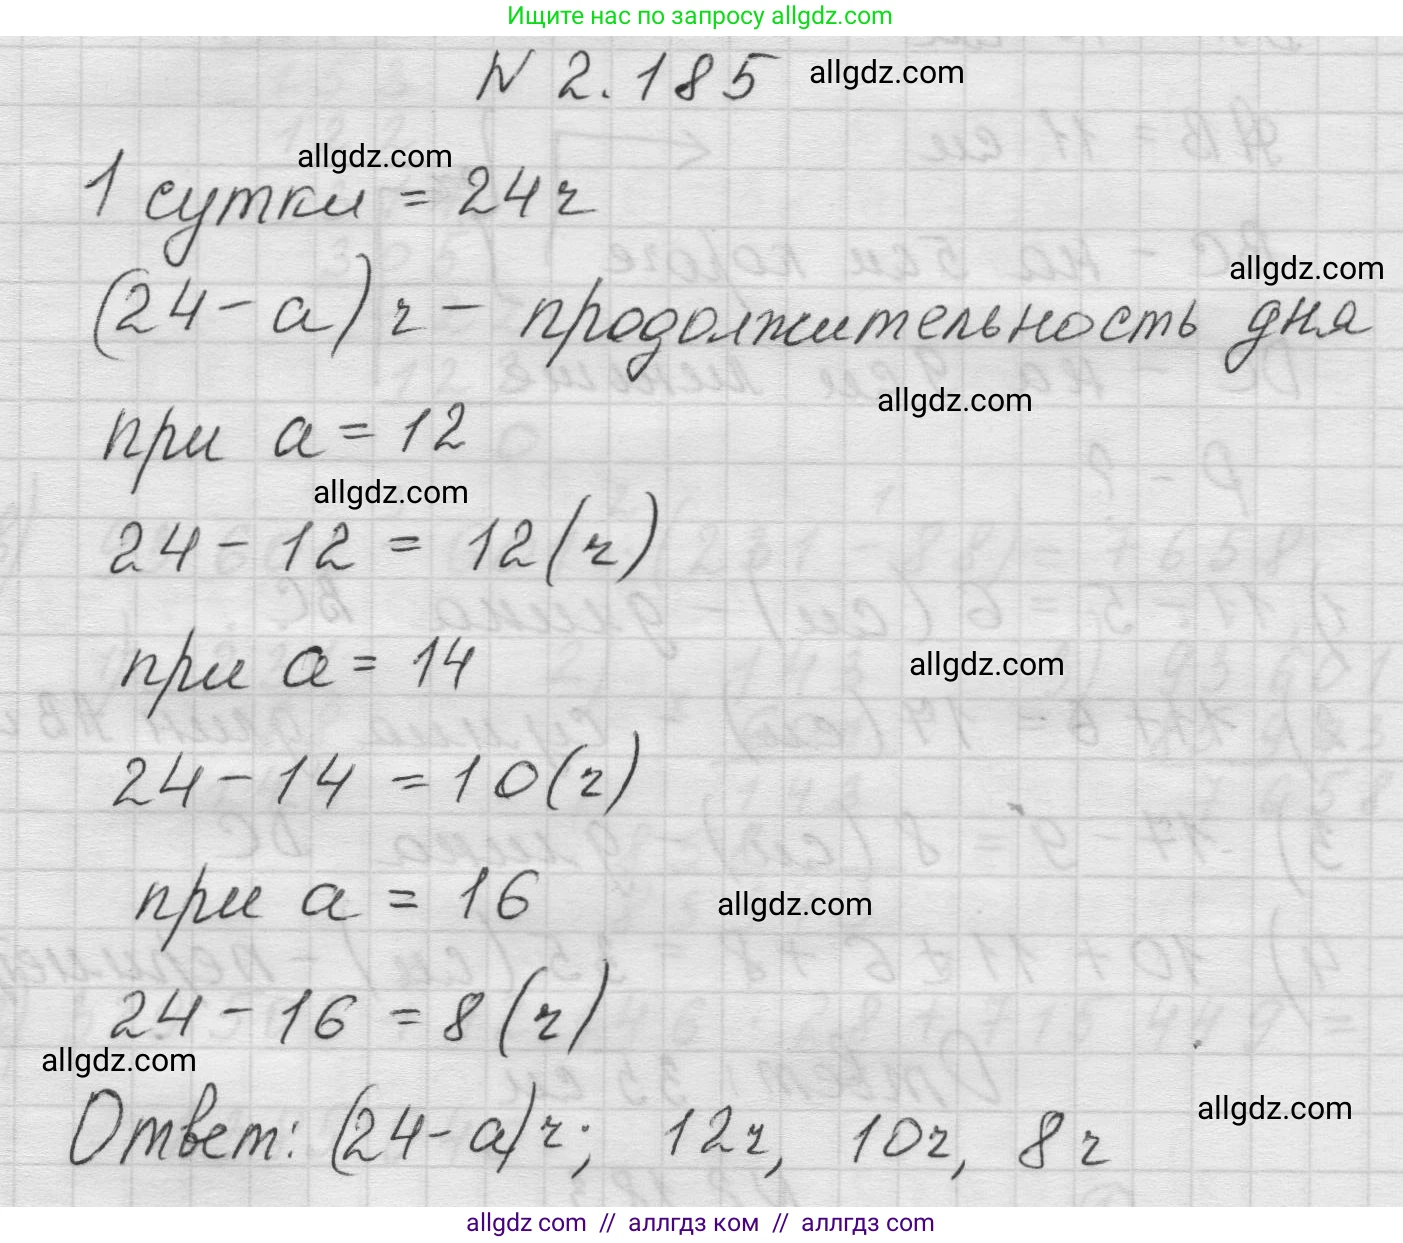 Ищите нас по запросу allgdz.com
N 2.185 allgdz.com
allgdz.com
1 сутки = 24 ч
allgdz.com
(24 - a) ч - продолжительность дня
allgdz.com
при a = 12
allgdz.com
24 - 12 = 12 (ч)
при a = 14
allgdz.com
24 - 14 = 10 (ч)
при a = 16
allgdz.com
24 - 16 = 8 (ч)
allgdz.com
allgdz.com
Ответ: (24 - a) ч; 12 ч, 10 ч, 8 ч
allgdz.com // аллгдз ком // аллгдз com